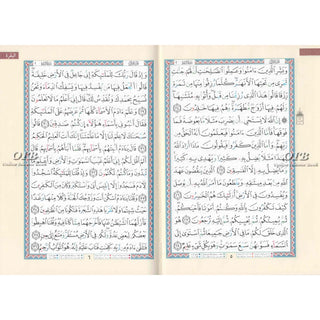 وَبَشِّرِ الَّذِينَ ءَامَنُوا وَعَمِلُوا الصَّٰلِحَٰتِ أَنَّ لَهُمْ جَنَّٰتٍ
تَجْرِي مِن تَحْتِهَا الْأَنْهَٰرُ كُلَّمَا رُزِقُوا مِنْهَا مِن ثَمَرَةٍ رِّزْقًا
قَالُوا هَٰذَا الَّذِي رُزِقْنَا مِن قَبْلُ وَأُتُوا بِهِ مُتَشَٰبِهًا
وَلَهُمْ فِيهَا أَزْوَٰجٌ مُّطَهَّرَةٌ وَهُمْ فِيهَا خَٰلِدُونَ ٢٥
إِنَّ اللَّهَ لَا يَسْتَحْيِ أَن يَضْرِبَ مَثَلًا مَّا بَعُوضَةً فَمَا
فَوْقَهَا فَأَمَّا الَّذِينَ ءَامَنُوا فَيَعْلَمُونَ أَنَّهُ الْحَقُّ مِن رَّبِّهِمْ
وَأَمَّا الَّذِينَ كَفَرُوا فَيَقُولُونَ مَاذَا أَرَادَ اللَّهُ بِهَٰذَا
مَثَلًا يُضِلُّ بِهِ كَثِيرًا وَيَهْدِي بِهِ كَثِيرًا
وَمَا يُضِلُّ بِهِ إِلَّا الْفَٰسِقِينَ ٢٦ الَّذِينَ يَنقُضُونَ عَهْدَ
اللَّهِ مِن بَعْدِ مِيثَٰقِهِ وَيَقْطَعُونَ مَا أَمَرَ اللَّهُ بِهِ أَن يُوصَلَ
وَيُفْسِدُونَ فِي الْأَرْضِ أُولَٰئِكَ هُمُ الْخَٰسِرُونَ ٢٧
كَيْفَ تَكْفُرُونَ بِاللَّهِ وَكُنتُمْ أَمْوَٰتًا فَأَحْيَٰكُمْ
ثُمَّ يُمِيتُكُمْ ثُمَّ يُحْيِيكُمْ ثُمَّ إِلَيْهِ تُرْجَعُونَ ٢٨
هُوَ الَّذِي خَلَقَ لَكُم مَّا فِي الْأَرْضِ جَمِيعًا ثُمَّ اسْتَوَىٰ إِلَى
السَّمَاءِ فَسَوَّىٰهُنَّ سَبْعَ سَمَٰوَٰتٍ وَهُوَ بِكُلِّ شَيْءٍ عَلِيمٌ ٢٩
٥
البقرة
وَإِذْ قَالَ رَبُّكَ لِلْمَلَٰئِكَةِ إِنِّي جَاعِلٌ فِي الْأَرْضِ خَلِيفَةً
قَالُوا أَتَجْعَلُ فِيهَا مَن يُفْسِدُ فِيهَا وَيَسْفِكُ الدِّمَاءَ وَنَحْنُ
نُسَبِّحُ بِحَمْدِكَ وَنُقَدِّسُ لَكَ قَالَ إِنِّي أَعْلَمُ مَا لَا تَعْلَمُونَ ٣٠
وَعَلَّمَ ءَادَمَ الْأَسْمَاءَ كُلَّهَا ثُمَّ عَرَضَهُمْ عَلَى الْمَلَٰئِكَةِ
فَقَالَ أَنبِئُونِي بِأَسْمَاءِ هَٰؤُلَاءِ إِن كُنتُمْ صَٰدِقِينَ ٣١ قَالُوا
سُبْحَٰنَكَ لَا عِلْمَ لَنَا إِلَّا مَا عَلَّمْتَنَا إِنَّكَ أَنتَ الْعَلِيمُ الْحَكِيمُ ٣٢
قَالَ يَٰٓـَٔادَمُ أَنبِئْهُم بِأَسْمَائِهِمْ فَلَمَّا أَنبَأَهُم بِأَسْمَائِهِمْ قَالَ
أَلَمْ أَقُل لَّكُمْ إِنِّي أَعْلَمُ غَيْبَ السَّمَٰوَٰتِ وَالْأَرْضِ وَأَعْلَمُ مَا
تُبْدُونَ وَمَا كُنتُمْ تَكْتُمُونَ ٣٣ وَإِذْ قُلْنَا لِلْمَلَٰئِكَةِ اسْجُدُوا
لِـَٔادَمَ فَسَجَدُوا إِلَّا إِبْلِيسَ أَبَىٰ وَاسْتَكْبَرَ وَكَانَ مِنَ الْكَٰفِرِينَ ٣٤
وَقُلْنَا يَٰٓـَٔادَمُ اسْكُنْ أَنتَ وَزَوْجُكَ الْجَنَّةَ وَكُلَا مِنْهَا رَغَدًا
حَيْثُ شِئْتُمَا وَلَا تَقْرَبَا هَٰذِهِ الشَّجَرَةَ فَتَكُونَا مِنَ الظَّٰلِمِينَ ٣٥
فَأَزَلَّهُمَا الشَّيْطَٰنُ عَنْهَا فَأَخْرَجَهُمَا مِمَّا كَانَا فِيهِ وَقُلْنَا اهْبِطُوا
بَعْضُكُمْ لِبَعْضٍ عَدُوٌّ وَلَكُمْ فِي الْأَرْضِ مُسْتَقَرٌّ وَمَتَٰعٌ إِلَىٰ حِينٍ ٣٦
فَتَلَقَّىٰ ءَادَمُ مِن رَّبِّهِ كَلِمَٰتٍ فَتَابَ عَلَيْهِ إِنَّهُ هُوَ التَّوَّابُ الرَّحِيمُ ٣٧
٦